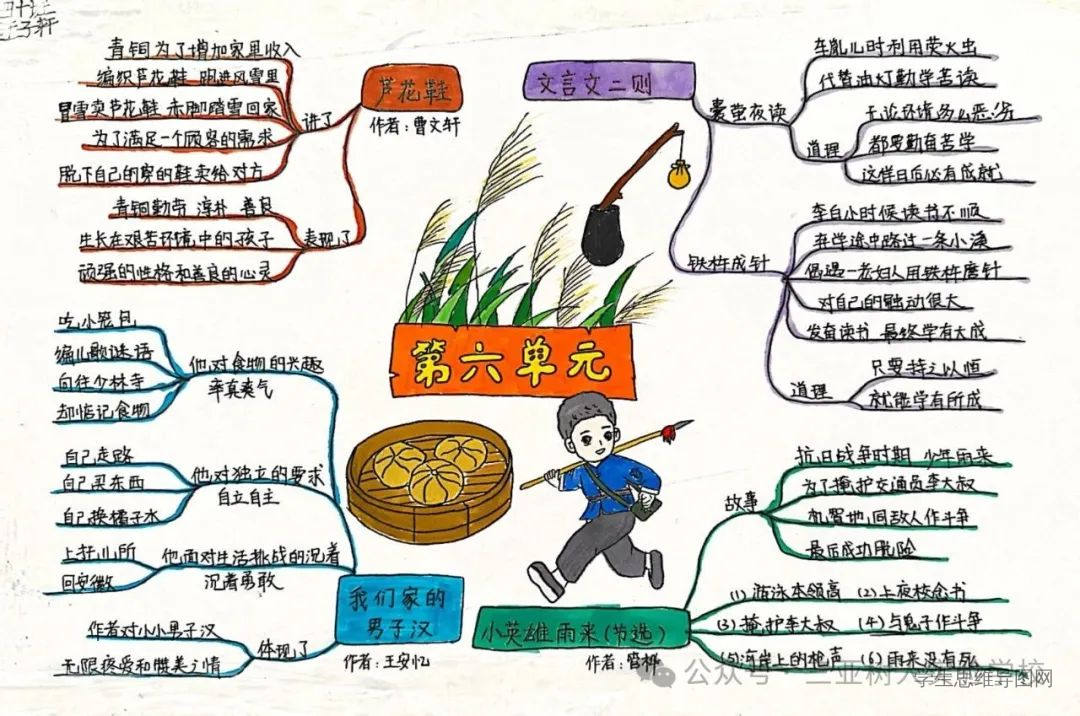 第六单元
芦花鞋
作者：曹文轩
讲了
青铜为了增加家里收入
编织芦花鞋 跑进风雪里
冒雪卖芦花鞋 赤脚踏雪回家
为了满足一个顾客的需求
脱下自己的穿的鞋卖给对方
表现了
青铜勤劳 淳朴 善良
生长在艰苦环境中的孩子
顽强的性格和善良的心灵
文言文二则
囊萤夜读
车胤儿时利用荧火虫
代替油灯勤学苦读
道理
无论环境多么恶劣
都要勤奋苦学
这样日后必有成就
铁杵成针
李白小时候读书不顺
在学途中路过一条小溪
偶遇一老妇人用铁杵磨针
对自己的触动很大
发奋读书 最终学有大成
道理
只要持之以恒
就能学有所成
我们家的
男子汉
作者：王安忆
他对食物的兴趣
率真爽气
吃小笼包
编儿歌谜语
向往少林寺
却惦记食物
他对独立的要求
自立自主
自己走路
自己买东西
自己换橘子水
他面对生活挑战的沉着
沉着勇敢
上托儿所
回安徽
体现了
作者对小小男子汉
无限疼爱和赞美之情
小英雄雨来(节选)
作者：管桦
故事
抗日战争时期 少年雨来
为了掩护交通员李大叔
机智地同敌人作斗争
最后成功脱险
(1) 游泳本领高 (2) 上夜校念书
(3) 掩护李大叔 (4) 与鬼子作斗争
(5) 河岸上的枪声 (6) 雨来没有死
学生思维导图网